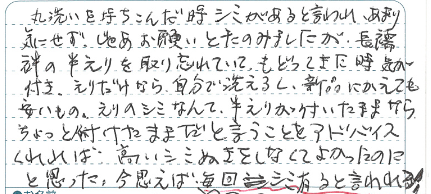 丸洗いを持ちこんだ時シミがあると言われ、あまり
気にせず、じゃあお願いとたのみましたが、長襦
袢の半えりを取り忘れていて、もどってきた時気が
付き、えりだけなら、自分で洗えるし、新品にかえても
安いもの。えりのシミなんて、半えりが付いたままなら
ちょっと付けたままだと言うことをアドバイス
くれれば、高いシミぬきをしなくてよかったのに
と思った。今思えば毎回シミあると言われる